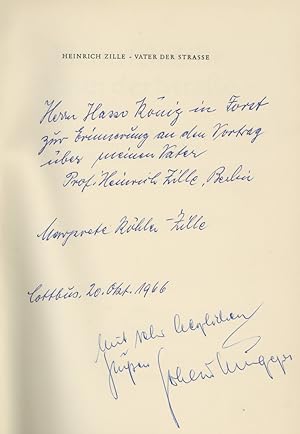 HEINRICH ZILLE - VATER DER STRASSE
Herrn Hasso König in Forst
zur Erinnerung an den Vortrag
über meinen Vater
Prof. Heinrich Zille, Berlin
Margarete Köhler-Zille
Cottbus, 20. Okt. 1966
Mit sehr herzlichen
Grüßen